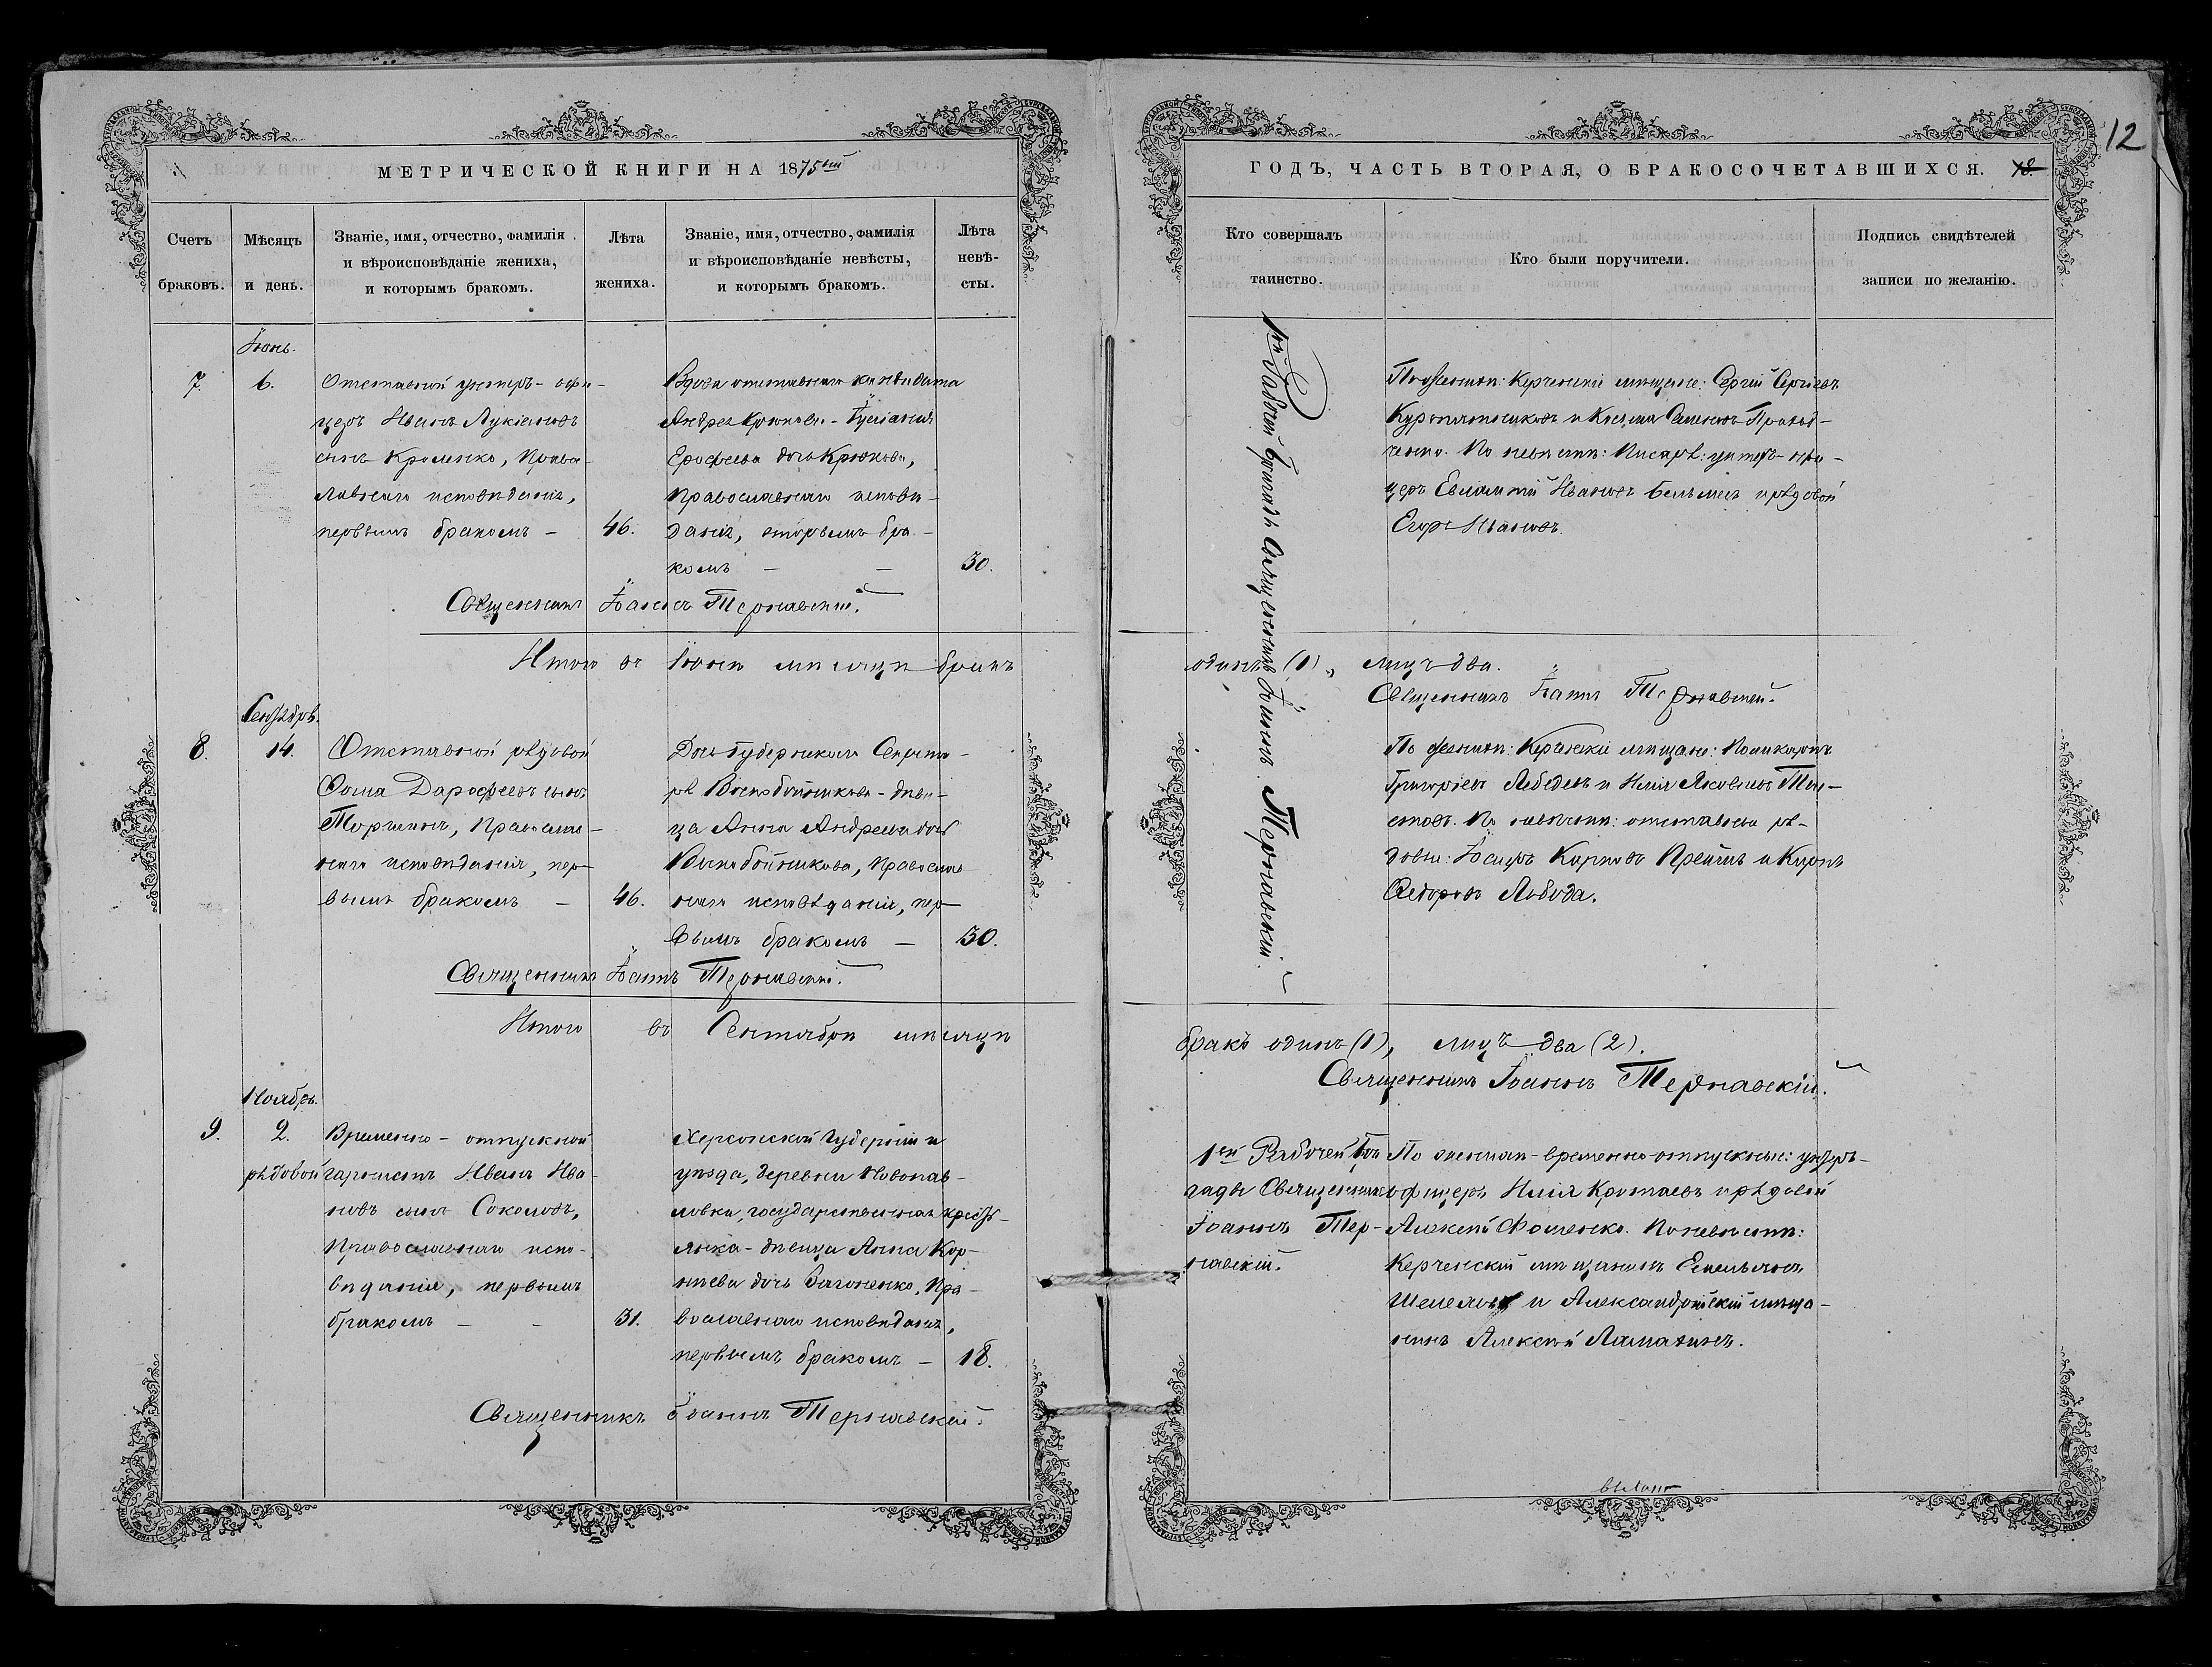 12
МЕТРИЧЕСКОЙ КНИГИ НА 1875ый
ГОДЪ, ЧАСТЬ ВТОРАЯ, О БРАКОСОЧЕТАВШИХСЯ.
Счетъ браковъ.
Мѣсяцъ и день.
Званіе, имя, отчество, фамилія
и вѣроисповѣданіе жениха,
и которымъ бракомъ.
Лѣта жениха.
Званіе, имя, отчество, фамилія
и вѣроисповѣданіе невѣсты,
и которымъ бракомъ.
Лѣта невѣ-
сты.
Кто совершалъ
таинство.
Кто были поручители.
Подпись свидѣтелей
записи по желанію.
Іюнь.
7. 6.
Отставной унтеръ-офи-
церъ Иванъ Лукіановъ
сынъ Кроленко, Права-
славнаго исповѣданія,
первымъ бракомъ – 46.
Вдова отставнаго кандидата
Андрея Крюкова -
Ерофеева дочь Крюкова,
православнаго исповѣ-
данія, вторымъ бра-
комъ – – 30.
Священникъ Іоаннъ Тернавскій.
1ой Рабочей Бригады Священникъ Іоаннъ Тернавскій.
По женихѣ: Керченскіе мѣщане: Сергій Сергіевъ
и Косьма Семеновъ
По невѣстѣ: Писарь: унтеръ-офи-
церъ Евлампій Ивановъ и рядовой
Егоръ Ивановъ.
Итого въ Іюнѣ мѣсяцѣ бракъ
одинъ (1), лицъ два.
Священникъ Іоаннъ Тернавскій.
Сентябрь.
8. 14.
Отставной рядовой
Фома Дарофеевъ сынъ
Торшинъ, Православ-
наго исповѣданія, пер-
вымъ бракомъ – 46.
Дочь Губернскаго Секрета-
ря Воскобойникова - дѣви-
ца Анна Андреева дочь
Воскобойникова, Православ-
наго исповѣданія, пер-
вымъ бракомъ – 30.
Священникъ Іоаннъ Тернавскій.
По женихѣ: Керченскіе мѣщане: Поликарпъ
Григорьевъ Лебедевъ и Илія Яковлевъ Тол-
стовъ. По невѣстѣ: отставные ря-
довые: Іосифъ Карповъ и Кирилъ
Федоровъ Лобода.
Итого въ Сентябрѣ мѣсяцѣ
бракъ одинъ (1), лицъ два (2).
Священникъ Іоаннъ Тернавскій.
Ноябрь.
9. 2.
Временно - отпускной
рядовой гарнистъ Иванъ Ива-
новъ сынъ Соколовъ,
Православнаго испо-
вѣданія, первымъ
бракомъ – – 31.
Херсонской Губерніи и
уѣзда, деревни Новопав-
ловки, государственная крестья-
янка - дѣвица Анна Кор-
нѣева дочь Пра-
вославнаго исповѣданія,
первымъ бракомъ – 18.
Священникъ Іоаннъ Тернавскій.
1ой Рабочей Бри-
гады Священникъ
Іоаннъ Тер-
навскій.
По женихѣ - временно-отпускные: унтеръ-
офицеръ Илія и рядовой
Алексѣй Фоменко. По невѣстѣ:
Керченскій мѣщанинъ Емельянъ
Шепелевъ и Александрійскій мѣща-
нинъ Алексѣй Ламакинъ.